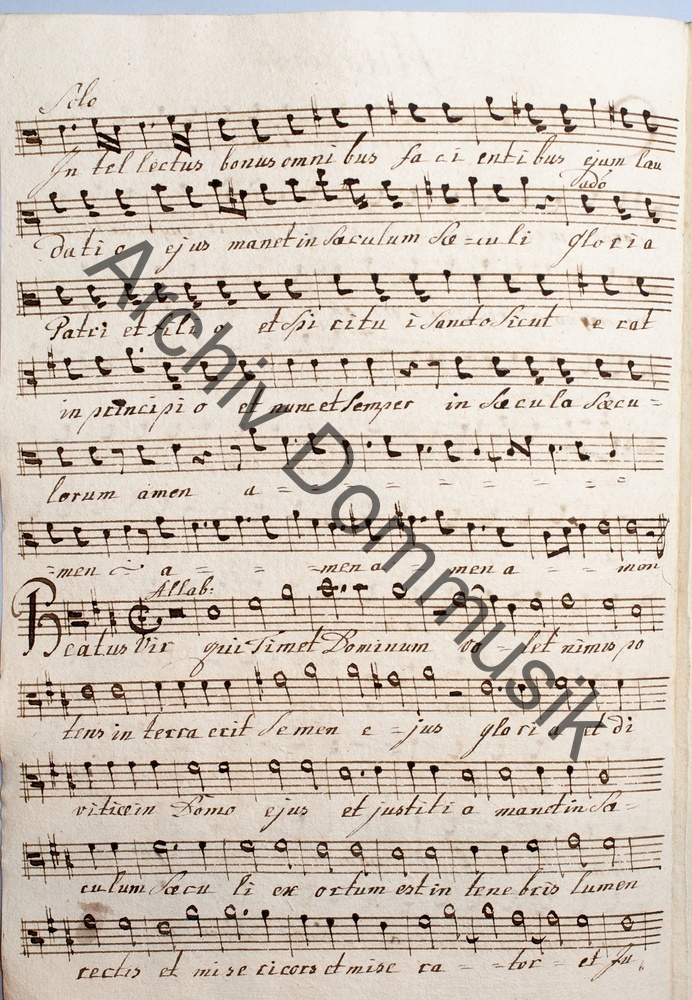 Solo
In tel lectus bonus omni bus fa ci enti bus ejum lau
dado
dati o ejus manet in Sæculum Sæ=culi gloria
Patri et Fili o et Spi ritu i Sancto Sicut e rat
in principi o et nunc et Semper in Sæcula Sæcu=
lorum amen a = = = = = = = =
=men a = = =men a = men a = = men
Allab:
Beatus Vir qui Timet Dominum vo = let nimis po
tens in terra erit Semen e =jus gloria et di
vitiæ in Domo ejus et justiti a manet in Sæ=
culum Sæcu li ex ortum est in tenebris lumen
rectis et mise ricors et mise ra = = tor = et Ju
Archiv Dommusik